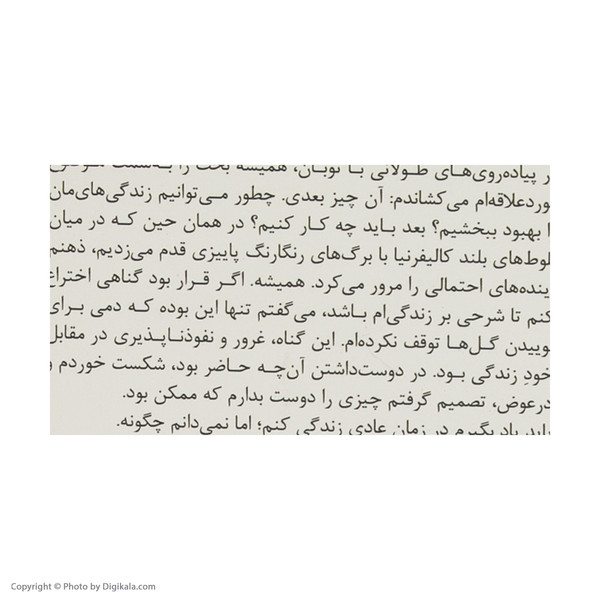 در پیاده‌روی‌های طولانی با توبان، همیشه بحث را به‌سمت
موردعلاقه‌ام می‌کشاندم: آن چیز بعدی. چطور می‌توانیم زندگی‌های‌مان
را بهبود ببخشیم؟ بعد باید چه کار کنیم؟ در همان حین که در میان
بلوط‌های بلند کالیفرنیا با برگ‌های رنگارنگ پاییزی قدم می‌زدیم، ذهنم
آینده‌های احتمالی را مرور می‌کرد. همیشه. اگر قرار بود گناهی اختراع
کنم تا شرحی بر زندگی‌ام باشد، می‌گفتم تنها این بوده که دمی برای
بوییدن گل‌ها توقف نکرده‌ام. این گناه، غرور و نفوذناپذیری در مقابل
خودِ زندگی بود. در دوست‌داشتن آن‌چه حاضر بود، شکست خوردم و
درعوض، تصمیم گرفتم چیزی را دوست بدارم که ممکن بود.
باید یاد بگیرم در زمان عادی زندگی کنم؛ اما نمی‌دانم چگونه.
Copyright © Photo by Digikala.com